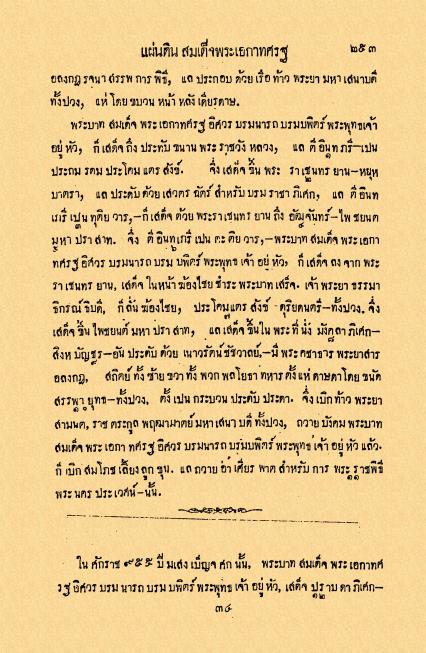 แผ่นดิน สมเด็จพระเอกาทศรฐ ๒๕๓
อลงกฎ รจนา สรรพ การ พิธี, แล ประกอบ ด้วย เรือ ท้าว พระยา มหา เสนาบดี
ทั้งปวง, แห่ โดย ขบวน หน้า หลัง เดียรดาษ.
พระบาท สมเด็จ พระ เอกาทศรฐ อิศวร บรมนารถ บรมบพิตร์ พระพุทธเจ้า
อยู่ หัว, ก็ เสด็จ ถึง ประทับ ขนาน พระ ราชวัง หลวง, แล ตี อินทเภรี–เปน
ประถม รคม ประโคม แตร สังข์. จึ่ง เสด็จ ขึ้น พระ ราเชนทร ยาน–หยุห
บาตรา, แล ประดับ ด้วย เสวตร ฉัตร์ สำหรับ บรม ราชา ภิเศก, แล ตี อินท
เภรี เปน ทุติย วาร,–ก็ เสด็จ ด้วย พระ ราเชนทร ยาน ถึง อัฒจันทร์–ไพ ชยนต
มหา ปรา สาท. จึ่ง ตี อินทเภรี เปน ตะ ติย วาร,–พระบาท สมเด็จ พระ เอกา
ทศรฐ อิศวร บรมนารถ บรม บพิตร์ พระพุทธ เจ้า อยู่ หัว, ก็ เสด็จ ลง จาก พระ
รา เชนทร ยาน, เสด็จ ใน หน้า ฆ้องไชย ชำระ พระบาท เสร็จ. เจ้า พระยา ธรรมา
ธิกรณ์ ธิบดี, ก็ ลั่น ฆ้องไชย, ประโคมแตร สังข์ ดุริยดนตรี–ทั้งปวง. จึ่ง
เสด็จ ขึ้น ไพชยนต์ มหา ปรา สาท, แล เสด็จ ขึ้นใน พระ ที่ นั่ง มังคลา ภิเศก–
สิงห บัญชร–อัน ประดับ ด้วย เนาวรัตน์ ชัชวาลย์.–มี พระ คชาธาร พระยาสาร
อลงกฎ, สถิตย์ ทั้ง ซ้าย ขวา ทั้ง พวก พลโยธา ทหาร ตั้ง แห่ ดาษดาโดย ขนัด
สรรพา ยุทธ–ทั้งปวง. ตั้ง เปน กระบวน ประดับ ประดา. จึ่ง เบิก ท้าว พระยา
สามนต, ราช ตระกูล พฤฒามาตย์ มหา เสนา บดี ทั้งปวง, ถวาย บังคม พระบาท
สมเด็จ พระ เอกา ทศรฐ อิศวร บรมนารถ บรมบพิตร์ พระพุทธ เจ้า อยู่ หัว แล้ว.
ก็ เบิก สม โภช เลี้ยง ลูก ขุน. แล ถวาย อา เศียร พาท สำหรับ การ พระ ราชพิธี
พระ นคร ประเวศน์–นั้น.
ใน ศักราช ๙๕๕ ปี มเสง เบ็ญจ ศก นั้น, พระบาท สมเด็จ พระ เอกาทศ
รฐ อิศวร บรม นารถ บรม บพิตร์ พระพุทธ เจ้า อยู่ หัว, เสด็จ ปราบ ดา ภิเศก–
๓๔